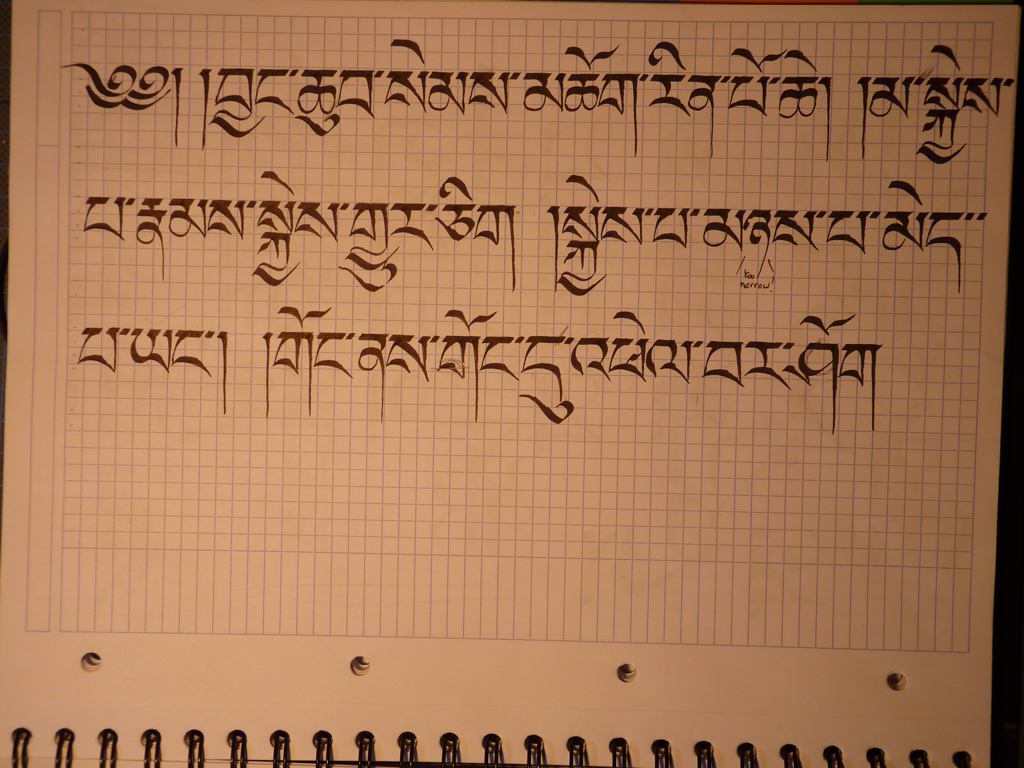 ༄༅། །བྱང་ཆུབ་སེམས་མཆོག་རིན་པོ་ཆེ། །མ་སྐྱེས་
པ་རྣམས་སྐྱེས་གྱུར་ཅིག །སྐྱེས་པ་མ་ཉས་པ་མེད་་
too
narrow!
པ་ཡང་། །གོང་ནས་གོང་དུ་འཕེལ་བར་ཤོག